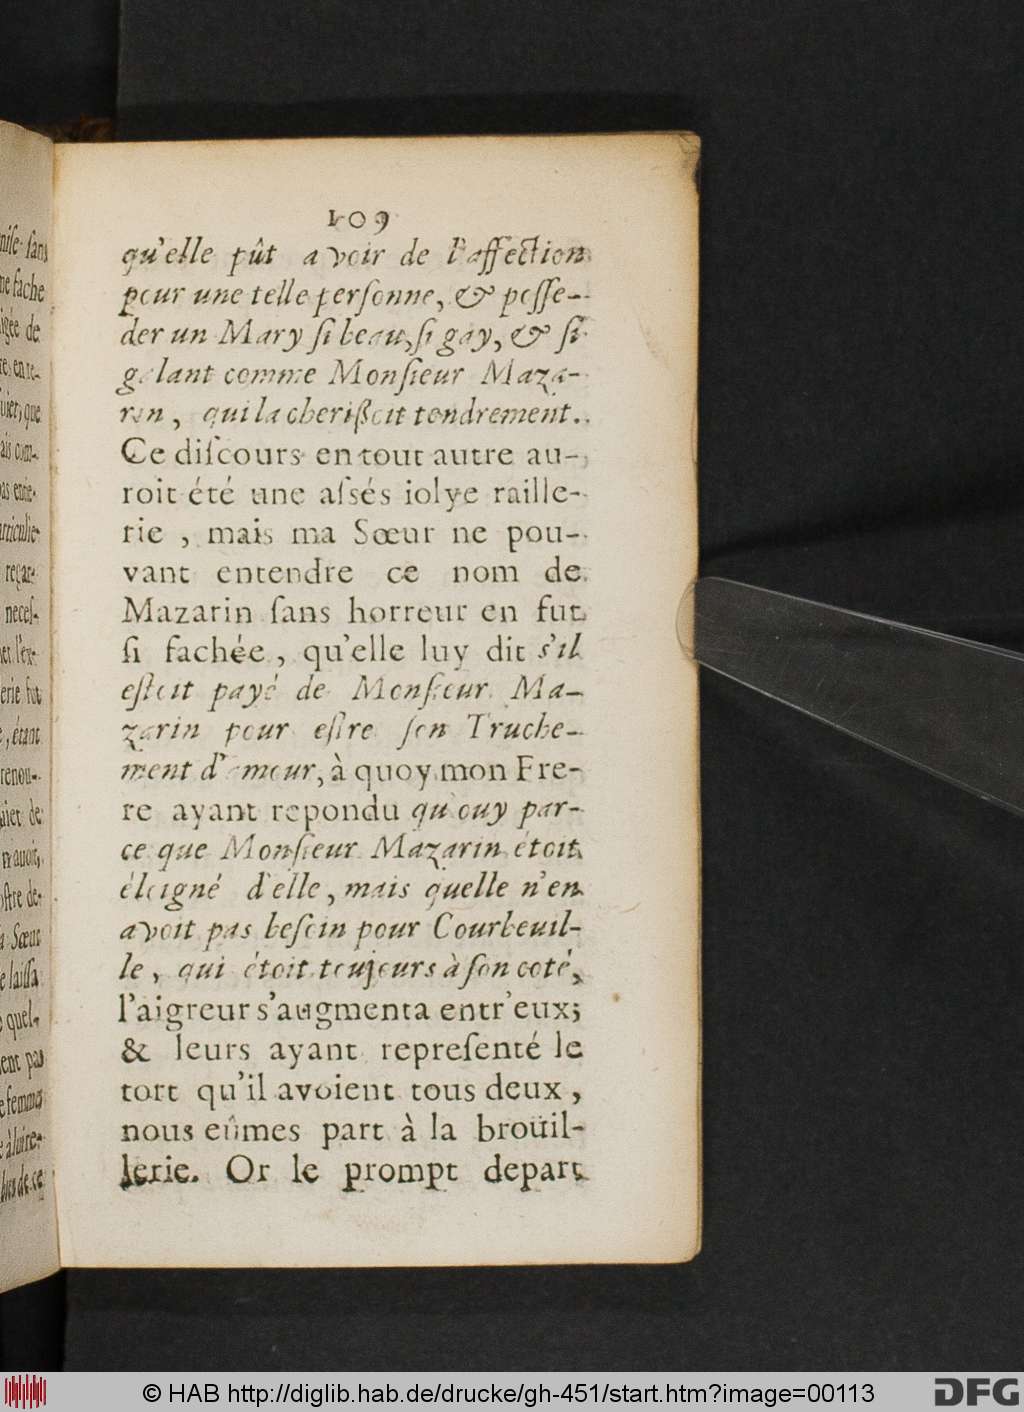 109
qu'elle pût avoir de l'affection
pour une telle perſonne, & poſſe-
der un Mary ſi beau, ſi gay, & ſi
galant comme Monſieur Maza-
rin, qui la cherißoit tendrement.
Ce diſcours en tout autre au-
roit été une aſsés iolye raille-
rie, mais ma Sœur ne pou-
vant entendre ce nom de
Mazarin ſans horreur en fut
ſi fachée, qu'elle luy dit s'il
eſtoit payé de Monſieur Ma-
zarin pour eſtre ſon Truche-
ment d'amour, à quoy mon Fre-
re ayant repondu qu'ouy par-
ce que Monſieur Mazarin étoit
éloigné d'elle, mais quelle n'en
avoit pas beſoin pour Courbeuil-
le, qui étoit toujours à ſon coté,
l'aigreur s'augmenta entr'eux;
& leurs ayant repreſenté le
tort qu'il avoient tous deux,
nous eûmes part à la broüil-
lerie. Or le prompt depart
niſe ſans
ne fache
igée de
re, en re-
uier, que
ais com-
pas entie-
rticulie-
regar-
neceſ-
et l'éx-
erie fut
, étant
renou-
uiet de
oſtre de-
a Sœur
e laiſſa
quel-
ent pas
e femmes
© HAB http://diglib.hab.de/drucke/gh-451/start.htm?image=00113
DFG